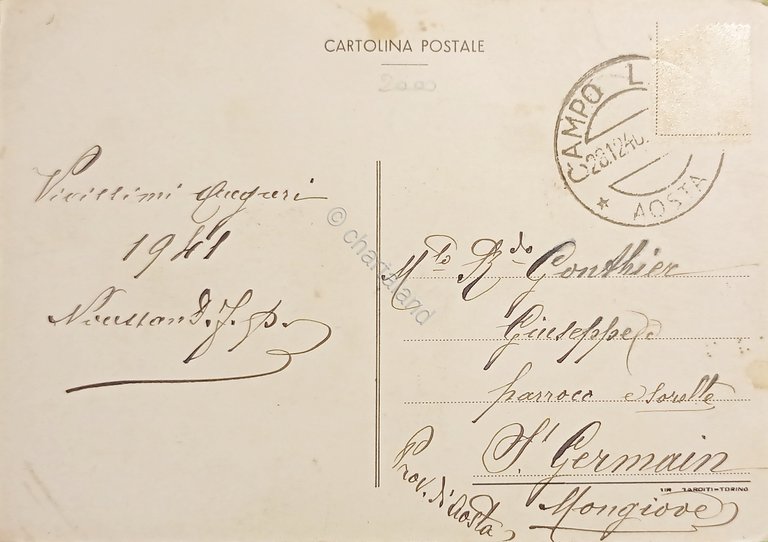 CARTOLINA POSTALE
2000
CAMPO L
28.12.40.
* AOSTA
Vivissimi auguri
1941
© chartaland
M.to R.do Gonthier
Giuseppe
parroco e sorelle
St Germain
Mongiove
Prov. di Aosta
TORINO